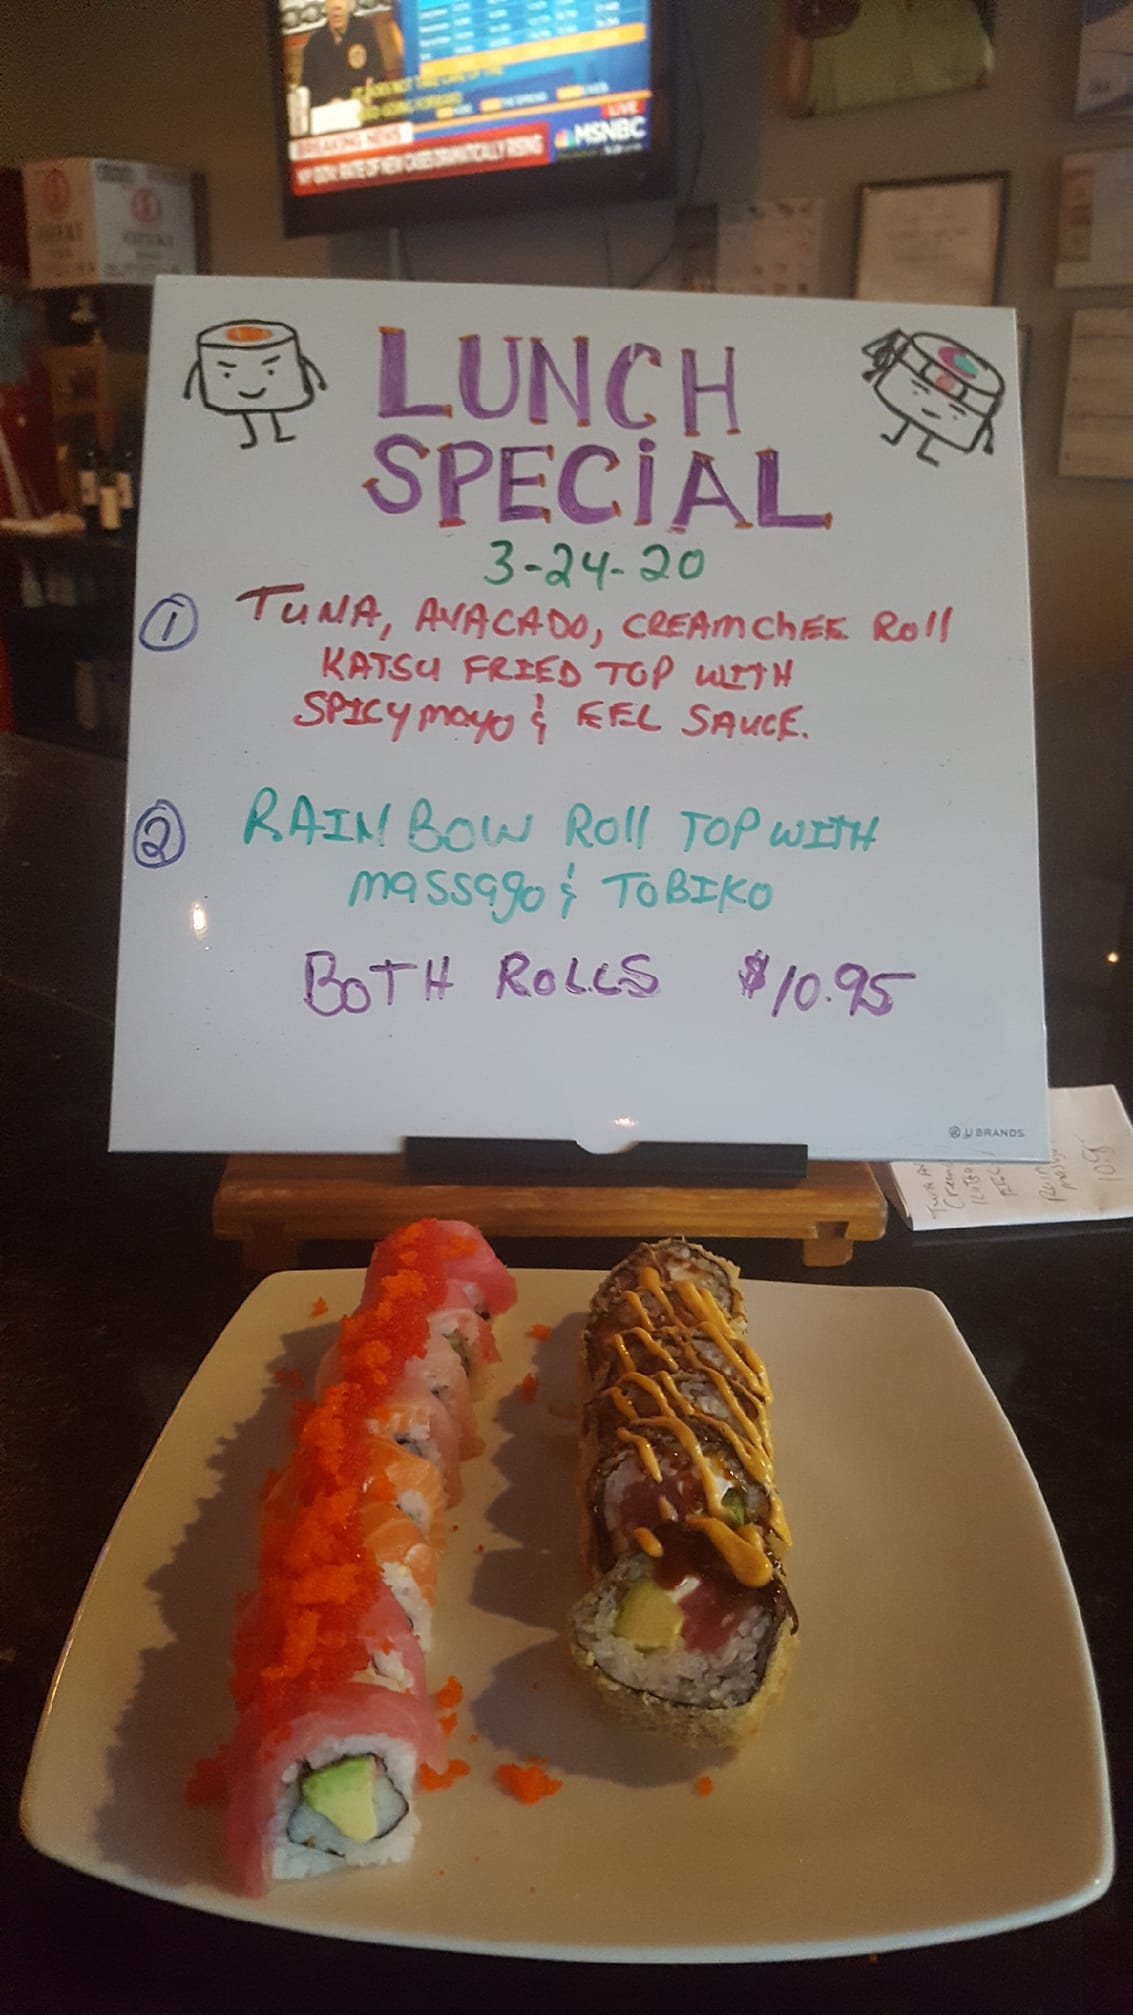 BREAKING NEWS
NY GOV: RATE OF NEW CASES DRAMATICALLY RISING
LIVE
MSNBC
LUNCH
SPECiAL
3-24-20
① TUNA, AVACADO, CREAMCHEE Roll
KATSU FRIED TOP WITH
SPICY mayo & EEL SAUCE.
② RAINBOW Roll TOP WITH
massago & TOBIKO
BOTH ROLLS $10.95
U BRANDS